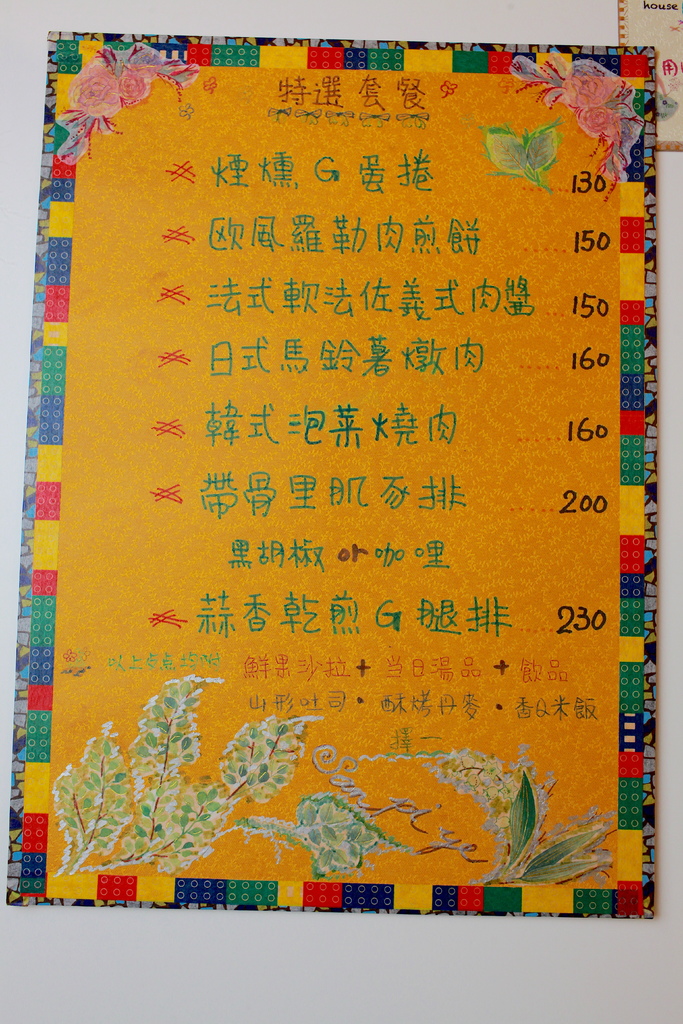 house
用
特選套餐
煙燻G蛋捲 ..... 130
欧風羅勒肉煎餅 ..... 150
法式軟法佐義式肉醬 .... 150
日式馬鈴薯燉肉 ..... 160
韓式泡菜燒肉 ..... 160
帶骨里肌豕排 ...... 200
黑胡椒 or 咖哩
蒜香乾煎G腿排 .... 230
以上套点均附 鮮果沙拉 + 当日湯品 + 飲品
山形吐司・酥烤丹麥・香Q米飯
擇一